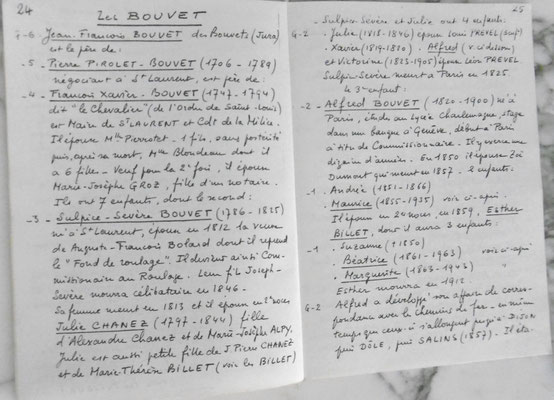 24
Les BOUVET
G-6 Jean-François BOUVET des Bouvets (Jura)
est le père de :
-5 - Pierre PIROLET-BOUVET (1706 - 1789)
négociant à St Laurent, est père de :
-4 - François Xavier - BOUVET (1747-1794)
dit "le Chevalier" (de l'ordre de Saint-Louis)
est Maire de St LAURENT et Cdt de la Milice.
Il épouse Mlle Pierrotet - 1 fils, sans postérité
puis, après sa mort, Mlle Blondeau dont il
a 6 filles - Veuf pour la 2e fois, il épouse
Marie-Josèphe GROZ, fille d'un notaire.
Ils ont 7 enfants, dont le second :
-3 - Sulpice-Sévère BOUVET (1786 - 1825)
né à St Laurent, épouse en 1812 la veuve
de Auguste-François Bolard dont il reprend
le "Fond de roulage". Il devient ainsi Com-
missionnaire au Roulage. Leur fils Joseph-
Sévère mourra célibataire en 1846 -
Sa femme meurt en 1813 et il épouse en 2e noces
Julie CHANEZ (1797-1844) fille
d'Alexandre Chanez et de Marie-Josèphe ALPY.
Julie est aussi petite fille de J. Pierre CHANEZ
et de Marie-Thérèse BILLET (voir les BILLET)
25
- Sulpice-Sévère et Julie ont 4 enfants :
G-2 - Julie (1818-1846) épouse Louis PREVEL
- Xavier (1819-1820) . Alfred (v. ci dessous)
et Victorine (1823-1905) épouse Léon PREVEL
Sulpice-Sévère meurt à Paris en 1825
le 3e enfant :
-2 - Alfred BOUVET (1820-1900) né à
Paris, étudie au Lycée Charlemagne, stage
dans une banque à Genève, débute à Paris
à titre de Commissionnaire. Il y exerce une
dizaine d'années. En 1850 il épouse Zoé
Dumont qui meurt en 1857. 2 enfants.
-1 . Andrée (1851-1866)
. Maurice (1855-1935) voir ci-après.
Il épouse en 2e noces, en 1859, Esther
BILLET, dont il aura 3 enfants :
-1 . Suzanne († 1850)
. Béatrice (1861-1963) voir ci-après
. Marguerite (1863-1943) "
Esther mourra en 1912.
G-2 Alfred a développé son affaire de corres-
pondance avec le chemin de fer - en même
temps que ceux-ci s'allongent jusqu'à DIJON
puis DÔLE, puis SALINS (1857). Il éta-